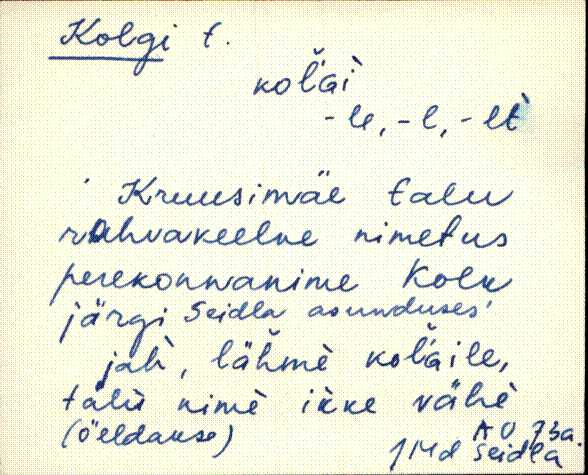 Kolgi t.
kol̆Gi
-le, -l, -lt
Kruusimäe talu
rahvakeelne nimetus
perekonnanime Kolk
järgi Seidla asunduses
lähme kol̆Gile,
talu nime ikke vähè
(öeldakse)
JMd Seidla